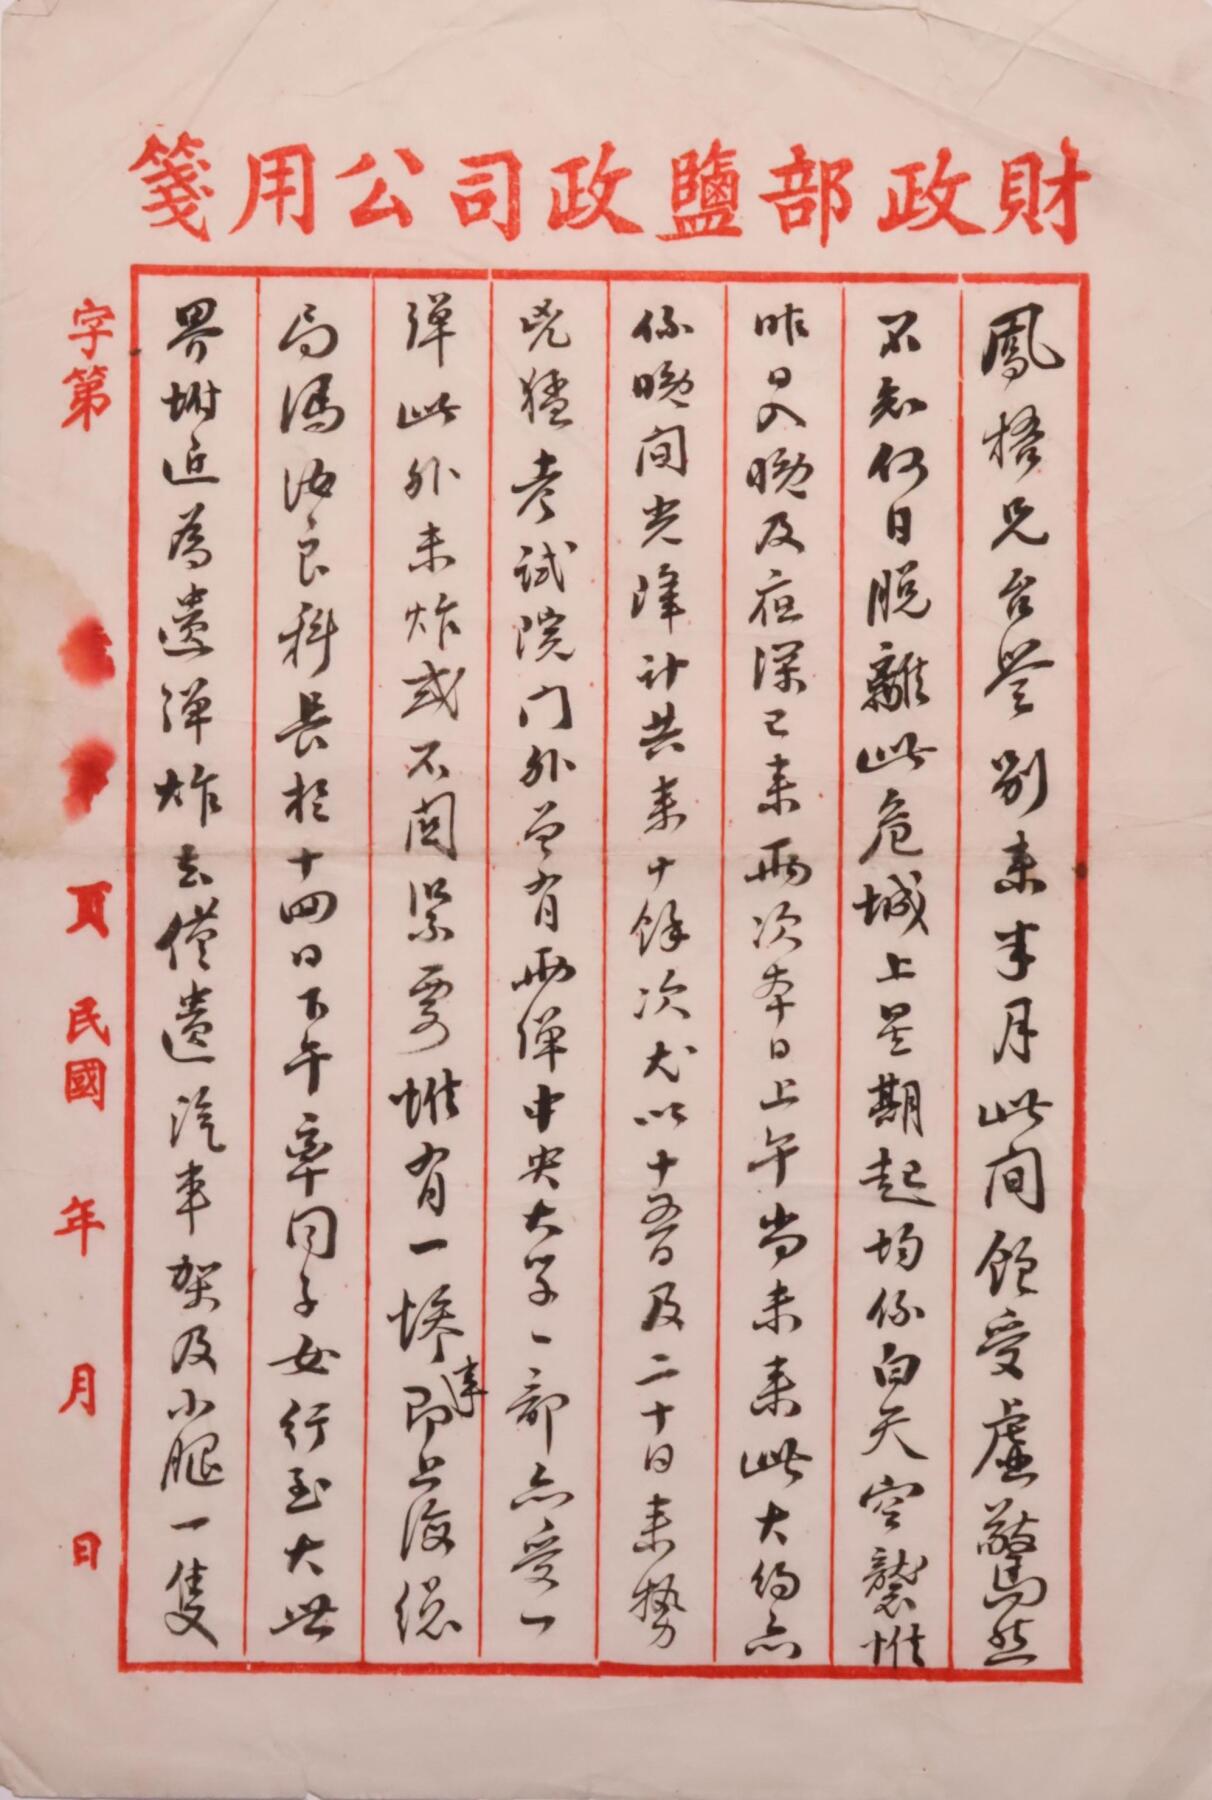 財政部鹽政司公用箋
鳳梧兄台詧別来半月此间飽受虛驚然
不知何日脫離此危城上星期起均係白天空襲惟
昨日入晚及夜深已来兩次本日上午尚未来此大約亦
係晚间光降计共来十餘次尤以十五日及二十日来勢
兇猛考試院门外曾有兩弹中央大学一部亦受一
弹此外未炸或不関緊要惟有一慘事即上海總
局馮汝良科長於十四日下午率同子女行至大世
界坿近為遺弹炸去僅遺汽車架及小腿一隻
字第
頁
民國
年
月
日